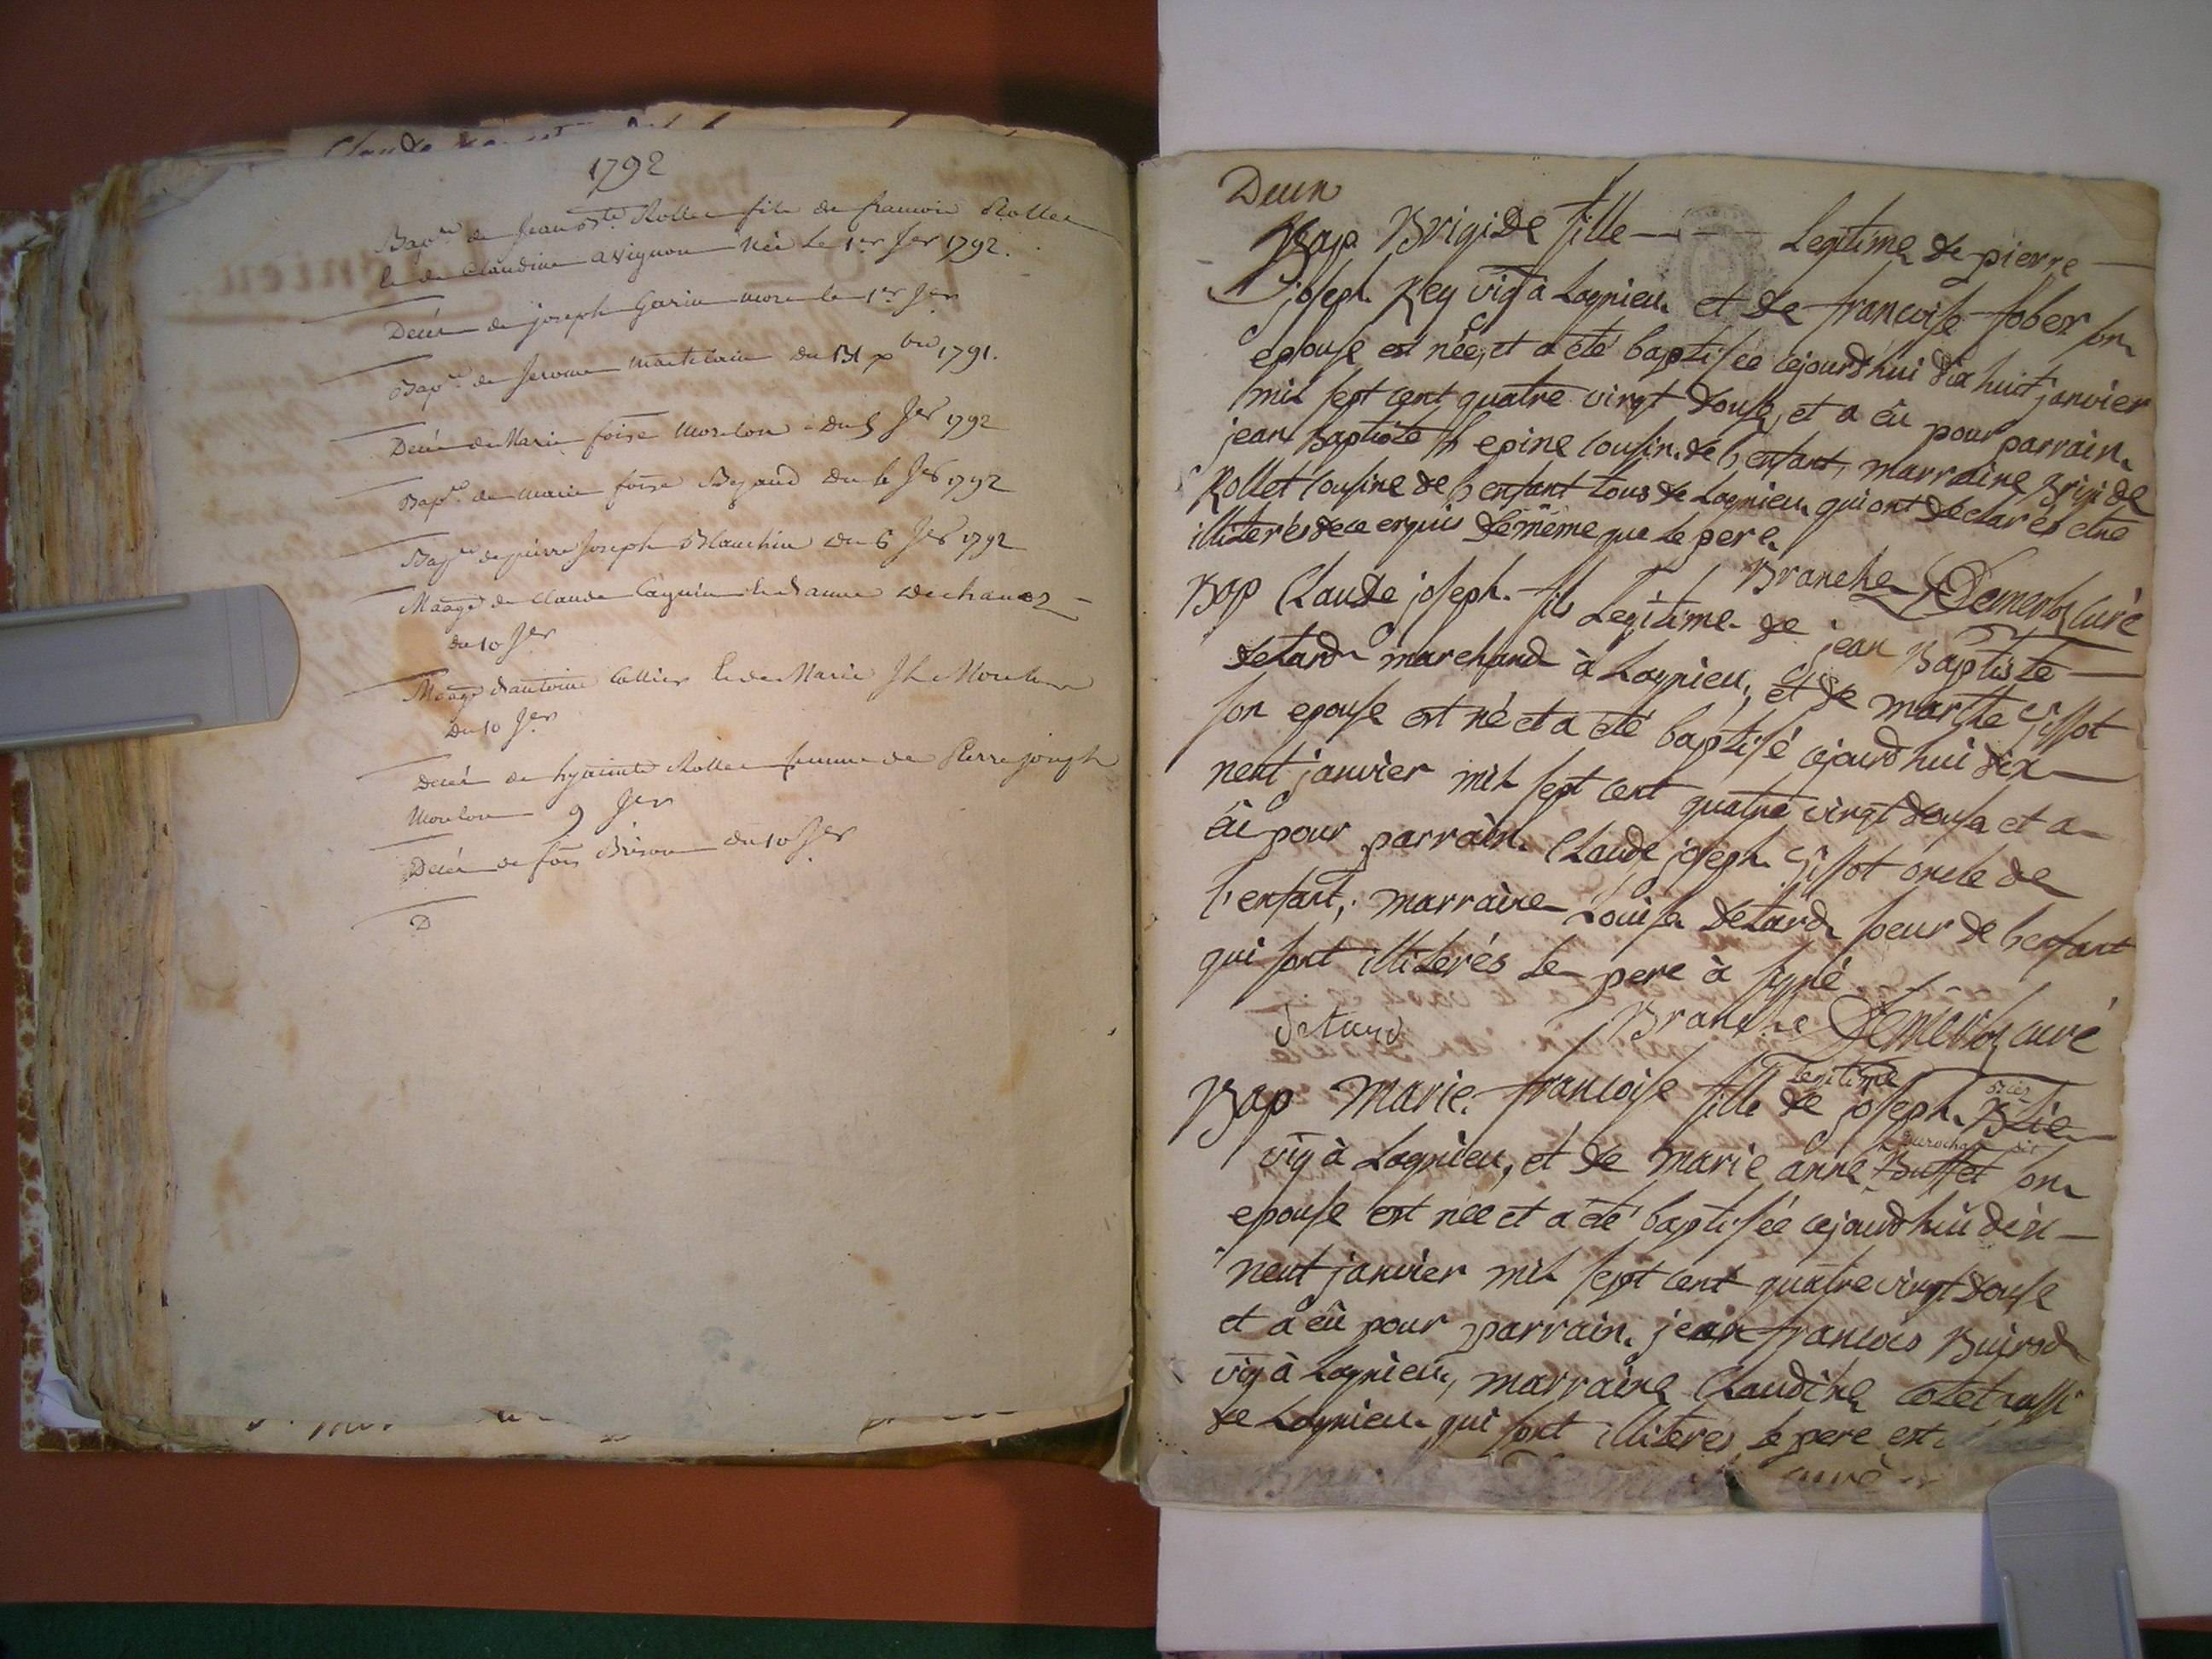 1792
Bap.me de Jean Bte. Rollet fils de francois Rollet
et de Claudine avignon Née le 1er Jer 1792.
Decès de joseph Garin mort le 1er Jer
Bap.me de Jerome du 31 xbre 1791.
Decès de Marie foise Morelon du 5 Jer 1792
Bap.me de marie foise Bejaud du 6 Jer 1792
Bap.me de pierre Joseph Blanchin du 6 Jer 1792
Maage de Claude et d'anne
du 10 Jer
Maage d'antoine Collier et de Marie
du 10 Jer
Decès de hyacinte Rollet femme de Pierre joseph
Morelon 9 Jer
Decès de fois Brison du 10 Jer
D
Deux
Bap Brigide fille legitime de pierre
joseph Rey vig à Lagnieu et de francoise fober son
epouse est née, et a été baptisée cejourd'hui dix huit janvier
mil sept cent quatre vingt douse, et a êu pour parrain
jean Baptiste epine cousin de l'enfant, marraine Brigide
Rollet cousine de l'enfant tous de Lagnieu qui ont declarés etre
illiterés de ce enquis de même que le pere
Branche Curé
Bap Claude joseph fils Legitime de jean Baptiste
detard marchand à Lagnieu, et de marthe
son epouse est né et a été baptisé cejourd hui dix
neut janvier mil sept cent quatre vingt douse et a
êu pour parrain Claude joseph oncle de
l'enfant, marraine Louise detard soeur de l'enfant
qui sont illiterés le pere à signé
detard Branche curé
Bap Marie francoise fille Legitime de joseph
vig à Lagnieu, et de marie anne Buffet son
epouse est née et a été baptisée cejourd hui dix
neut janvier mil sept cent quatre vingt douse
et a êu pour parrain jean francois Buirod
vig à Lagnieu, marraine Claudine
de Lagnieu qui sont illiteres le pere est
curé